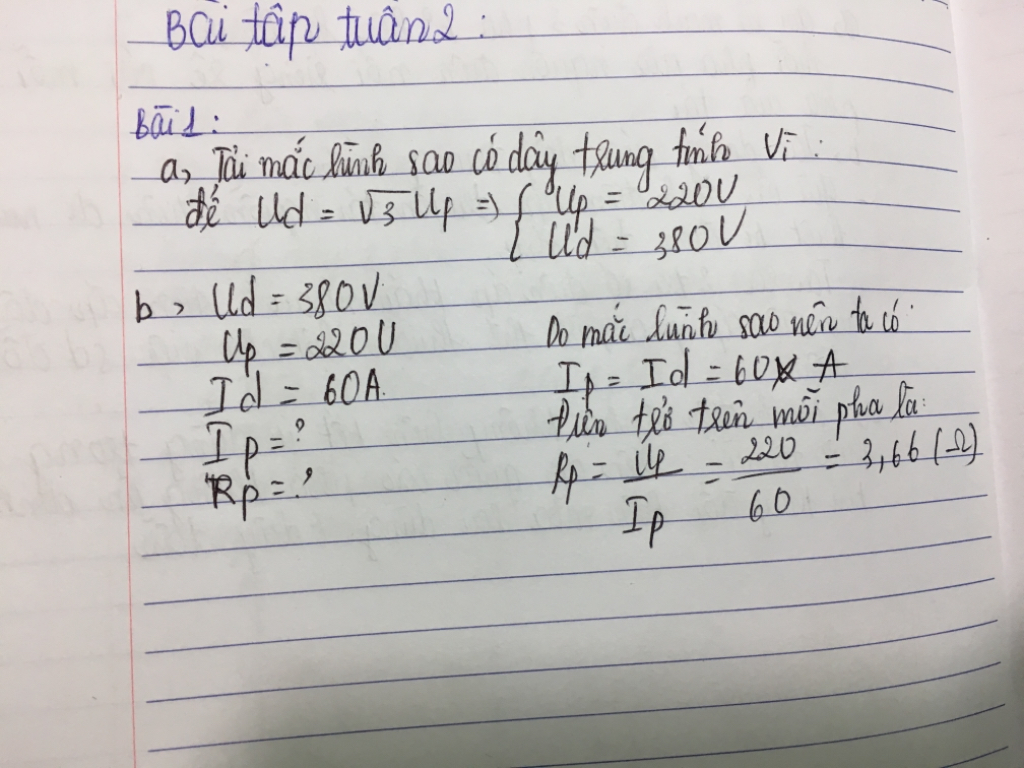 Bài tập tuần 2 :
Bài 1 :
a, Tải mắc hình sao có dây trung tính Vì :
để Ud = √3 Up => { Up = 220V
Ud = 380V
b, Ud = 380V
Up = 220V
Id = 60A.
Ip = ?
Rp = ?
Do mắc hình sao nên ta có
Ip = Id = 60 A
Điện trở trên mỗi pha là:
Rp = Up/Ip = 220/60 = 3,66 (Ω)